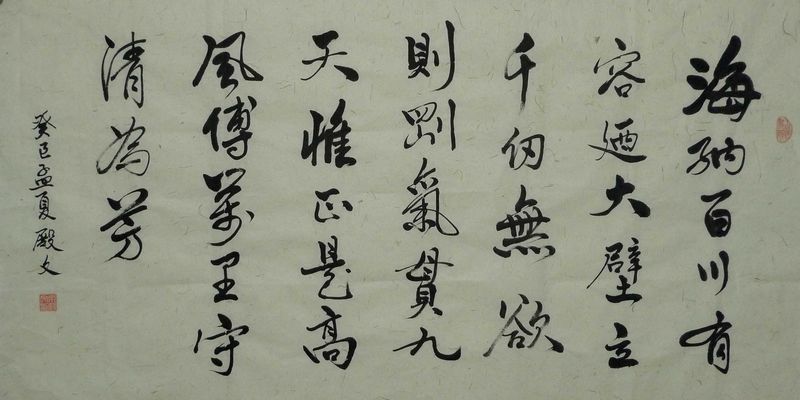 海納百川有
容廼大壁立
千仞無欲
則剛氣貫九
天惟正是高
風傳萬里守
清為芳
癸巳孟夏殿文